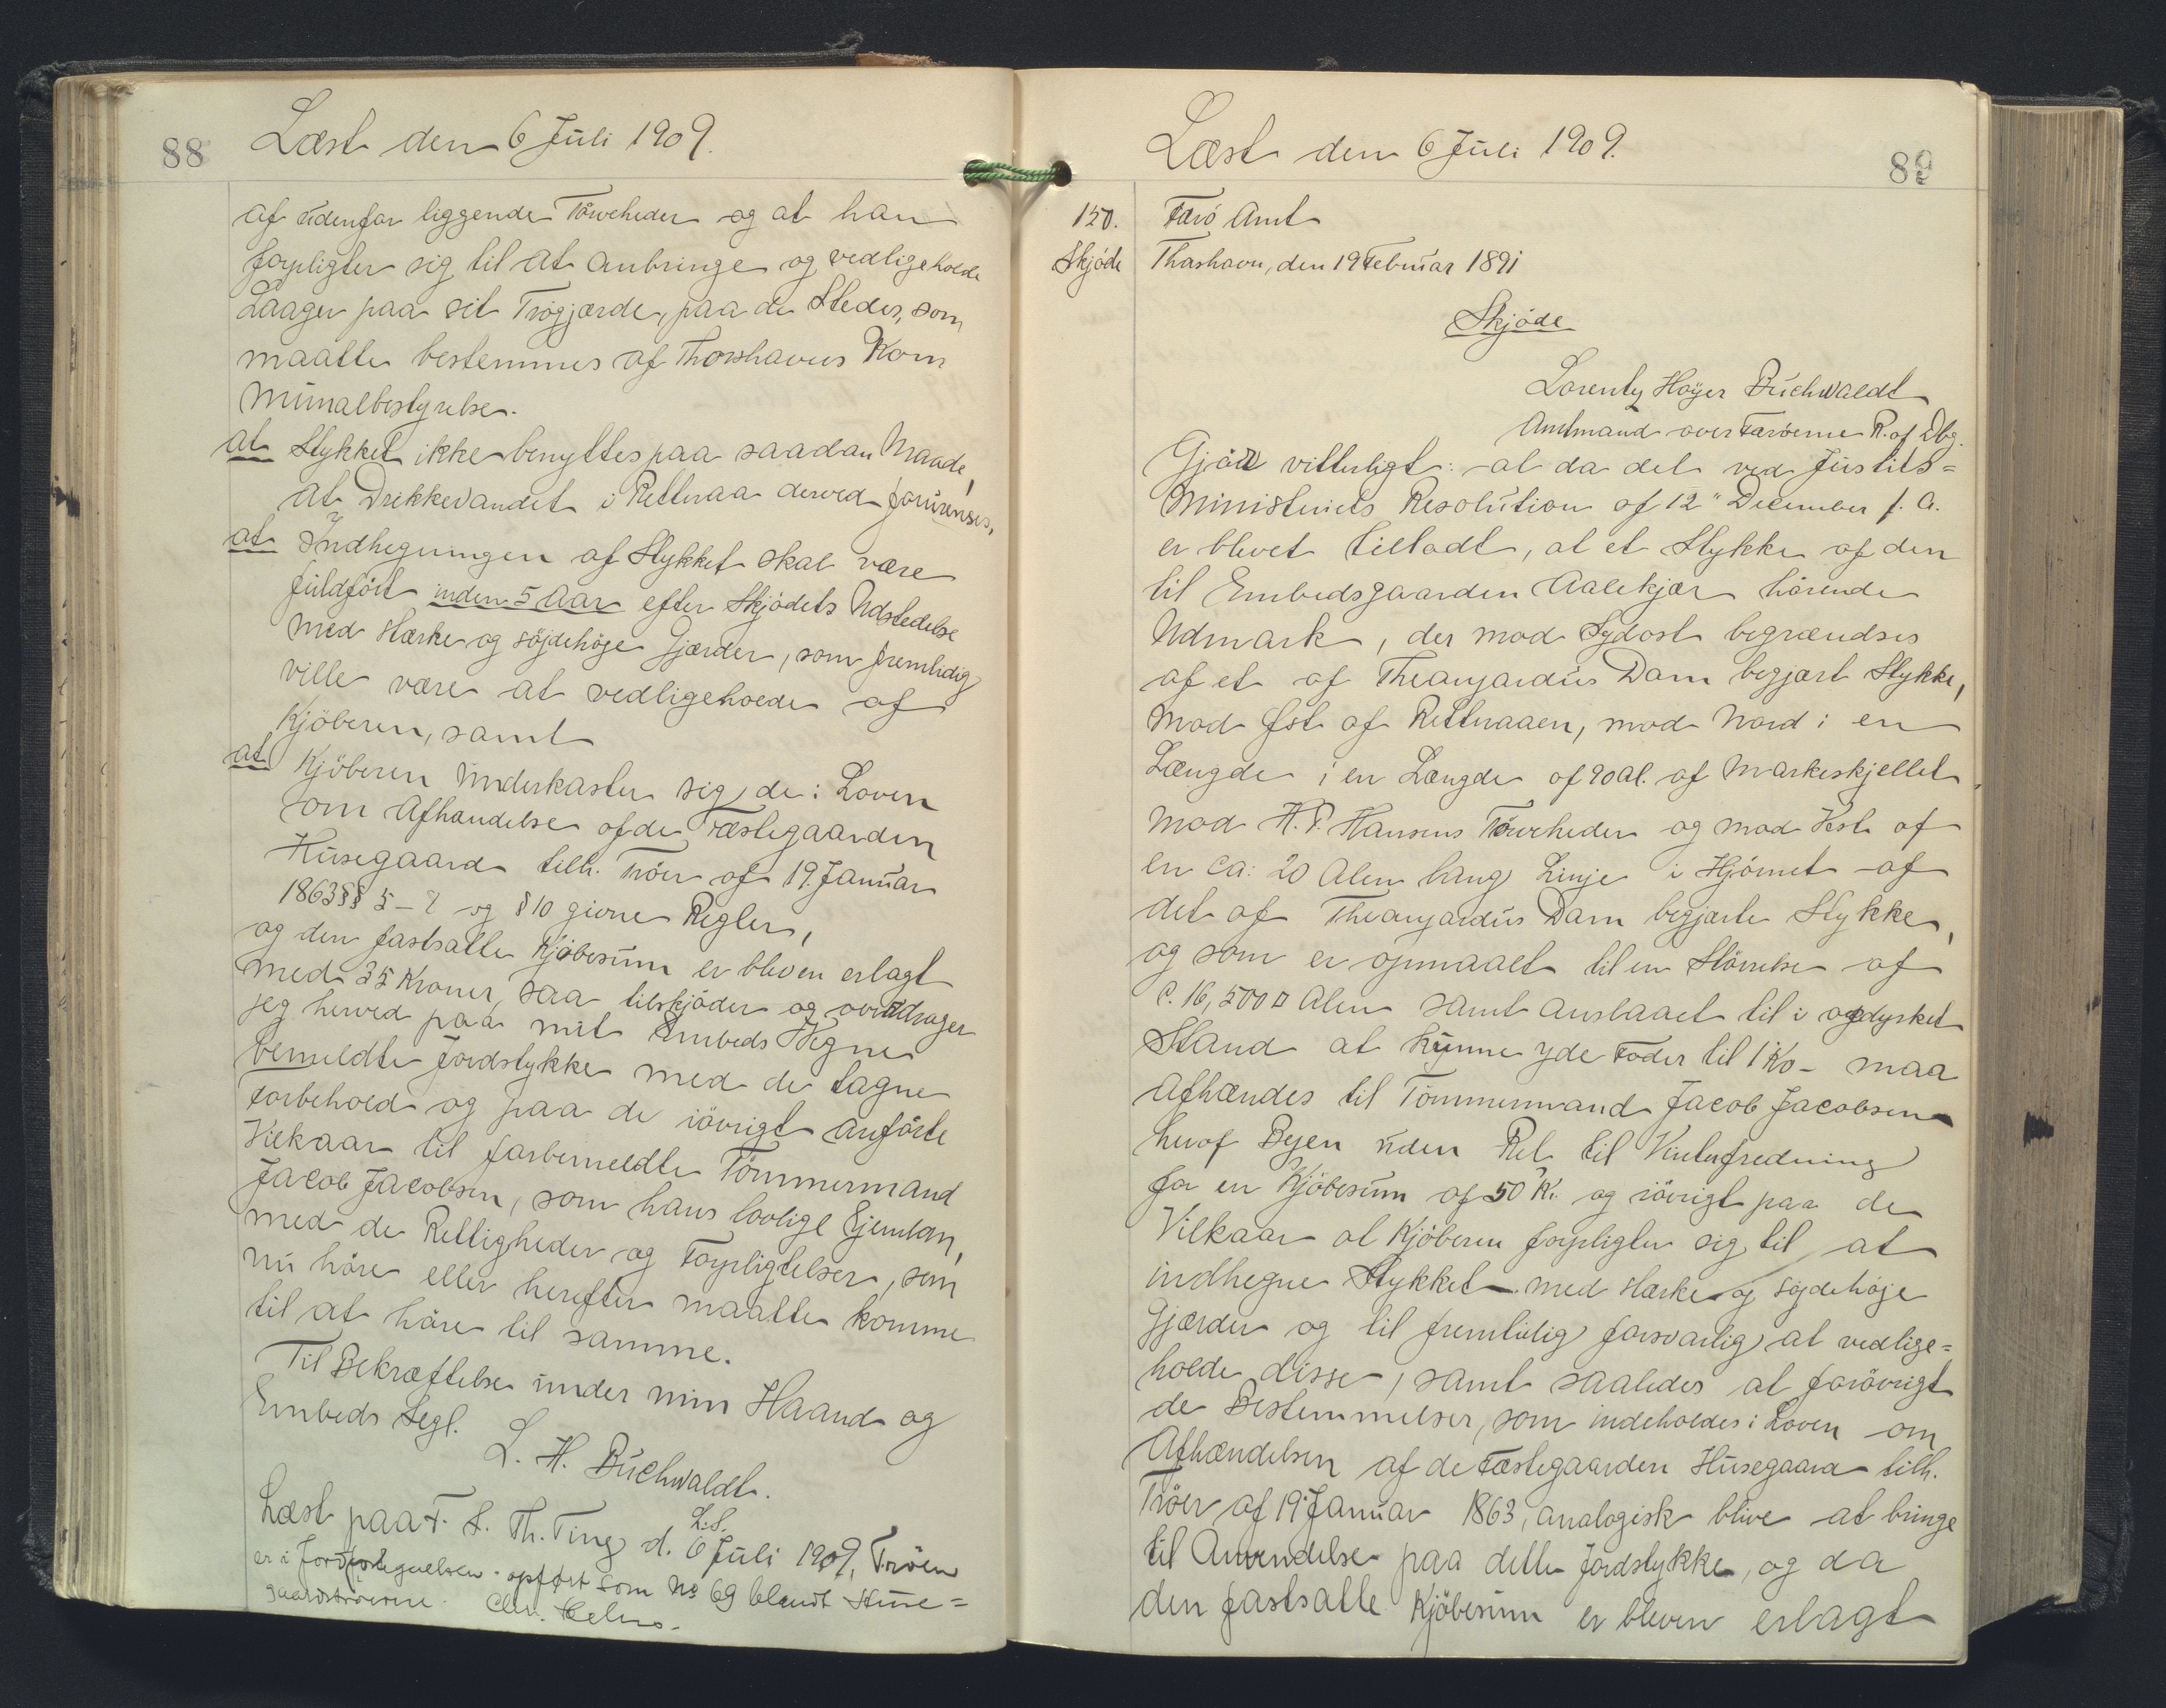 88
Læst den 6 Juli 1909.
af udenfor liggende Törveheder og at han
forpligter sig til at anbringe og vedligeholde
Laager paa sit Trögjærde, paa de Steder, som
maatte bestemmes af Thorshavns Kom
munalbestyrelse.
at Stykket ikke benyttes paa saadan Maade,
at Drikkevandet i Rætturaa derved forurenses,
at Indhegningen af Stykket skal være
fuldfört inden 5 Aar efter Skjödets Udstedelse
med stærke og söjdehöje Gjærder, som fremtidig
ville være at vedligeholde af
Kjöberen, samt
at Kjöberen underkaster sig de i Loven
om Afhændelse af de Fæstegaarden
Husegaard tilh. Tröer af 19. Januar
1863 §§ 5-7 og § 10 givne Regler,
og den fastsatte Kjöbesum er bleven erlagt
med 35 Kroner, saa tilskjöder og overdrager
jeg herved paa mit Embeds Vegne
bemeldte Jordstykke med de tagne
Forbehold og paa de iövrigt anförte
Vilkaar til forbemeldte Tömmermand
Jacob Jacobsen, som hans lovlige Ejendom,
med de Rettigheder og Forpligtelser, som
nu höre eller herefter maatte komme
til at höre til samme.
Til Bekræftelse under min Haand og
Embeds Segl.
L. H. Buchwaldt.
L.S.
Læst paa F. S. Th. Ting d. 6 Juli 1909, Tröen
er i Jordfortegnelsen opfört som No 69 blandt Huse=
gaardströerne.
89
Læst den 6 Juli 1909.
150.
Skjöde
Færö Amt
Thorshavn, den 19 Februar 1891
Skjöde
Lorentz Höyer Buchwaldt
Amtmand over Færöerne R. af Dbg.
Gjör vitterligt: at da det ved Justits=
Ministeriets Resolution af 12" December f. A.
er blevet tilladt, at et Stykke af den
til Embedsgaarden Aalekjær hörende
Udmark, der mod Sydost begrændses
af et af Theangardus Dam begjært Stykke,
mod Öst af Rætturaaen, mod Nord i en
Længde i en Længde af 90 al. af Markeskjellet
mod H. P. Hansens Törveheder og mod Vest af
en ca: 20 Alen lang Linje i Hjörnet af
det af Theangardus Dam begjærte Stykke,
og som er opmaalt til en Störrelse af
c. 16,500 □ Alen samt anslaaet til i opdyrket
Stand at kunne yde Foder til 1 Ko - maa
afhændes til Tömmermand Jacob Jacobsen
heraf Byen uden Ret til Vinterfredning
for en Kjöbesum af 50 Kr. og iövrigt paa de
Vilkaar at Kjöberen forpligter sig til at
indhegne Stykket med stærke og söjdehöje
Gjærder og til fremtidig forsvarlig at vedlige=
holde disse, samt saaledes at forövrigt
de Bestemmelser, som indeholdes i Loven om
Afhændelsen af de Fæstegaarden Husegaard tilh.
Tröer af 19. Januar 1863, analogisk blive at bringe
til Anvendelse paa dette Jordstykke, og da
den fastsatte Kjöbesum er bleven erlagt